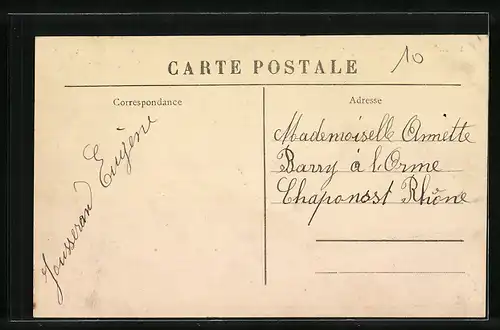 10
CARTE POSTALE
Correspondance
Jousserand Eugène
Adresse
Mademoiselle Annette
Barry à l'Orme
Chaponost Rhône